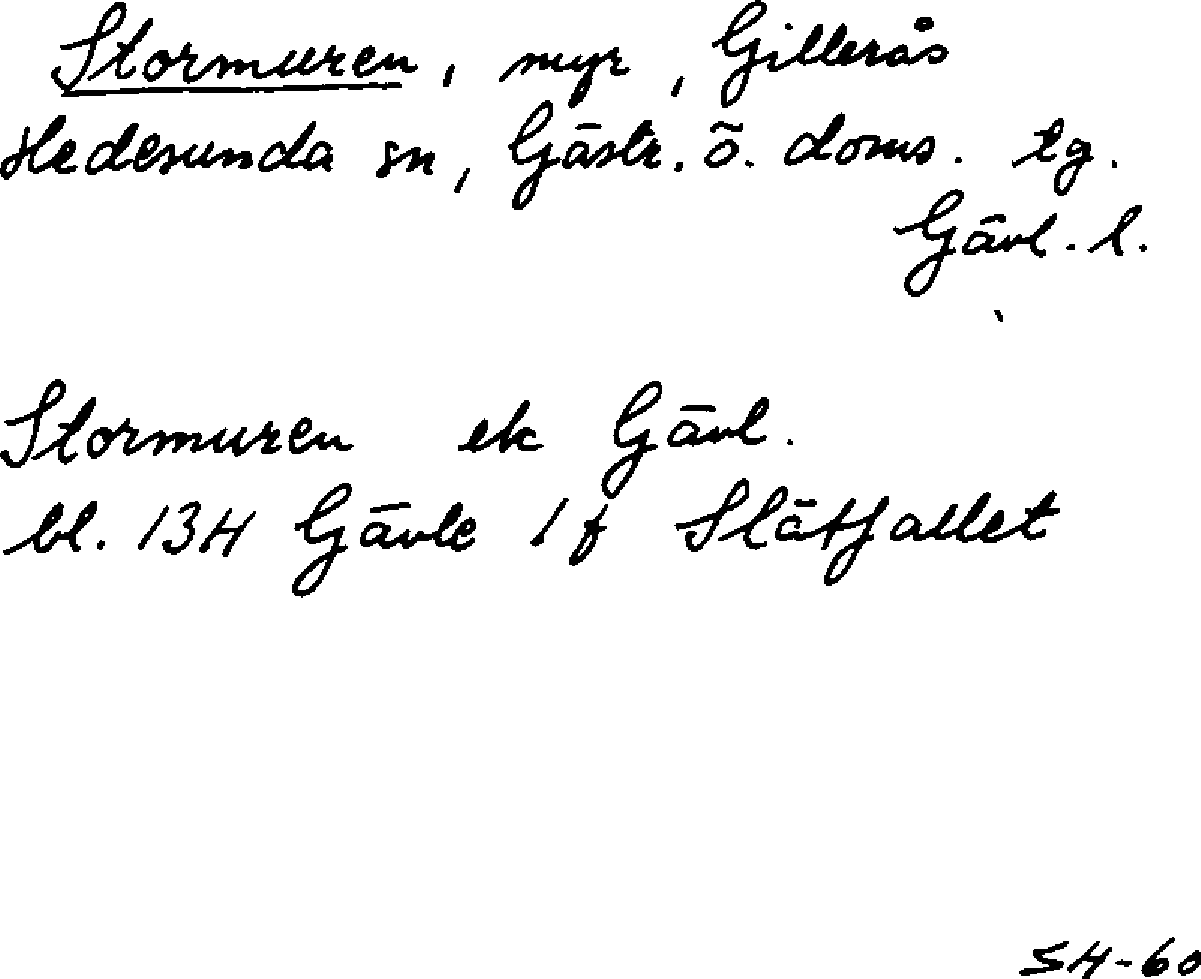 Stormuren, myr, Gillerås
Hedesunda sn, Gästr. ö. doms. tg.
Gävl. l.
Stormuren ek Gävl.
bl. 13H Gävle 1f Slätfallet
SH-60